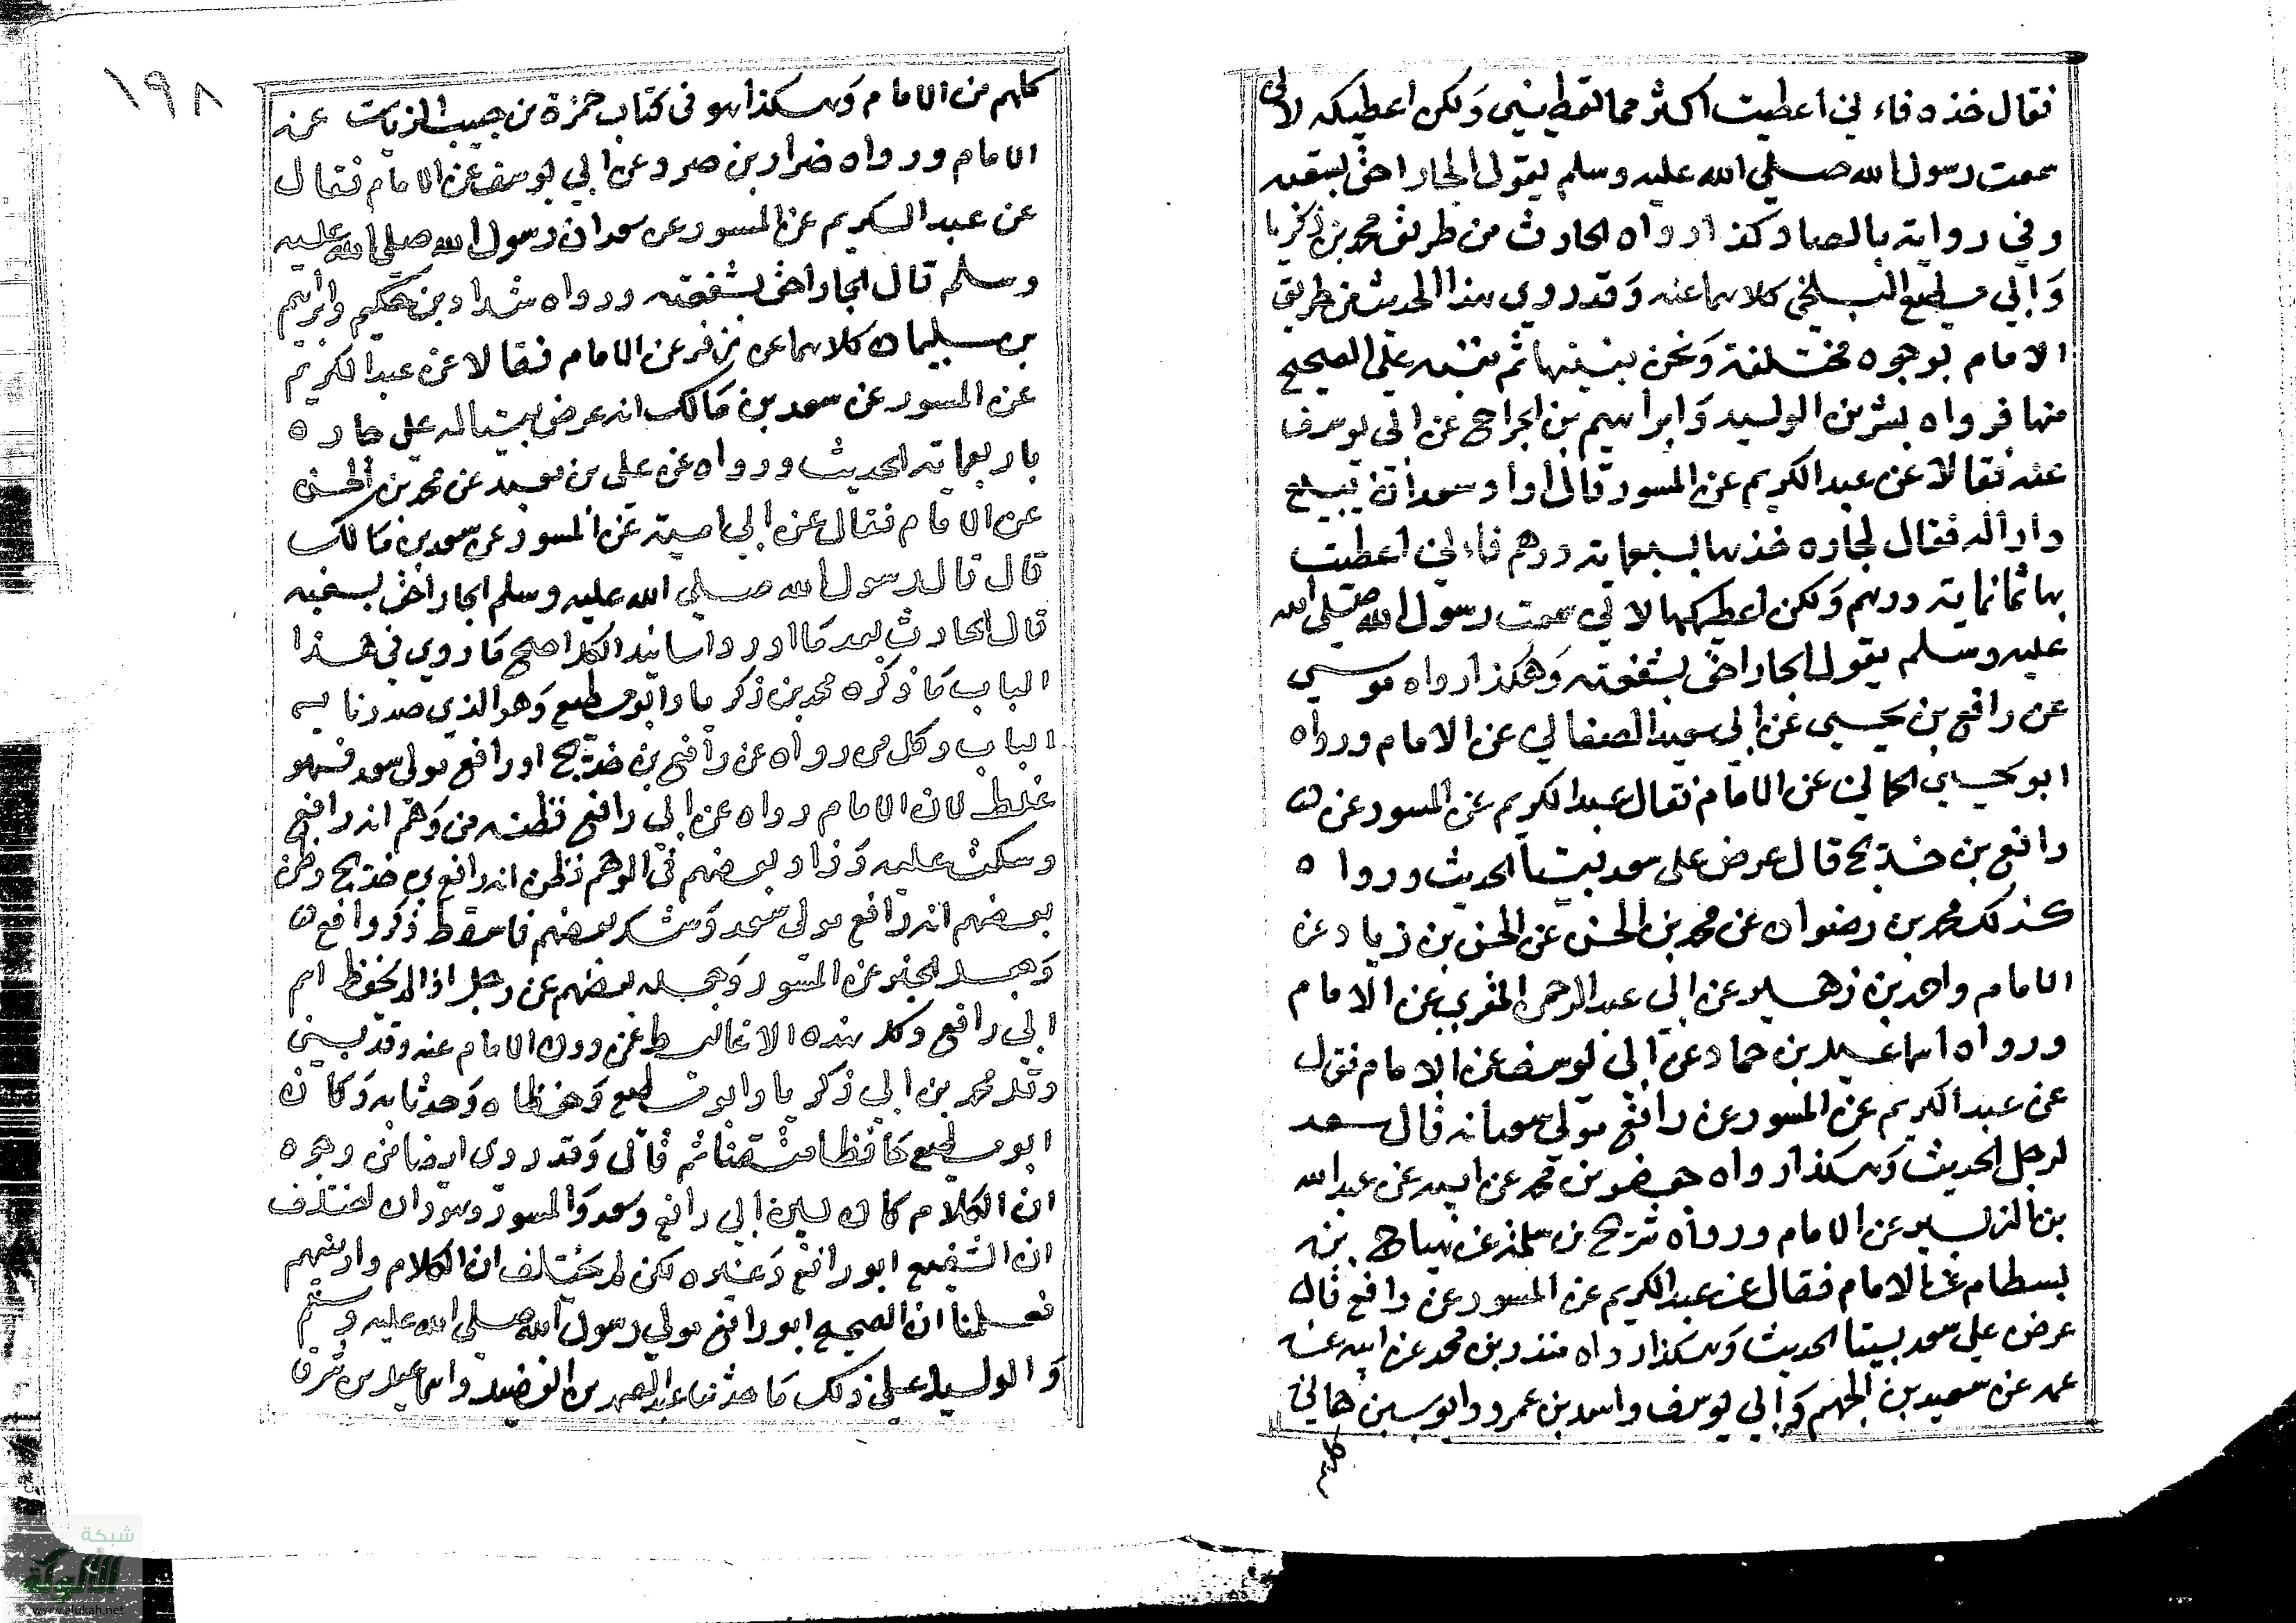 فقال خذه فاني اعطيت اكثر مما تعطيني ولكن اعطيكه لاني
سمعت رسول الله صلي الله عليه وسلم يقول الجار احق بسقبه
وفي رواية بالصاد كذا رواه الحارث من طريق محمد بن زكريا
وابي مطيع البلخي كلاهما عنه وقد روي هذا الحديث من طريق
الامام بوجوه مختلفة ونحن نبينها ثم ننبه علي الصحيح
منها فرواه بشر بن الوليد وابراهيم بن الجراح عن ابي يوسف
عنه فقالا عن عبد الكريم عن المسور قال اراد سعد ان يبيع
دارا له فقال لجاره خذها بسبعماية درهم فاني اعطيت
بها ثمانماية درهم ولكن اعطيكها لاني سمعت رسول الله صلي الله
عليه وسلم يقول الجار احق بشفعته وهكذا رواه موسي
عن رافع بن يحيي عن ابي سعيد الصغاني عن الامام ورواه
ابو يحيي الحماني عن الامام فقال عبد الكريم عن المسور عن
رافع بن خديج قال عرض علي سعد بيتا الحديث ورواه
كذلك محمد بن رضوان عن محمد بن الحسن عن الحسن بن زياد عن
الامام واحمد بن زهير عن ابي عبد الرحمن المقري عن الامام
ورواه اسماعيل بن حماد عن ابي يوسف عن الامام فقال
عن عبد الكريم عن المسور عن رافع مولي سعد انه قال سعد
لرجل الحديث وهكذا رواه حفص بن محمد عن ابيه عن عبد الله
بن الزبير عن الامام ورواه شريح بن سلمة عن هياج بن
بسطام عن الامام فقال عن عبد الكريم عن المسور عن رافع قال
عرض علي سعد بيتا الحديث وهكذا رواه منذر بن محمد عن ابيه عن
عمه عن سعيد بن الجهم وابي يوسف واسد بن عمرو وايوب بن هاني
كلهم
١٩٨
كلهم عن الامام وهكذا هو في كتاب حمزة بن حبيب الزيات عن
الامام ورواه ضرار بن صرد عن ابي يوسف عن الامام فقال
عن عبد الكريم عن المسور عن سعد ان رسول الله صلي الله عليه
وسلم قال الجار احق بشفعته ورواه شداد بن حكيم وابراهيم
بن سليمان كلاهما عن زفر عن الامام فقالا عن عبد الكريم
عن المسور عن سعد بن مالك انه عرض بيتا له علي جاره
باربعماية الحديث ورواه عن علي بن معبد عن محمد بن الحسن
عن الامام فقال عن ابي امية عن المسور عن سعد بن مالك
قال قال رسول الله صلي الله عليه وسلم الجار احق بسقبه
قال الحارث بعد ما اورد اسانيد الكل اصح ما روي في هذا
الباب ما ذكره محمد بن زكريا وابو مطيع وهو الذي صدرنا به
الباب وكل من رواه عن رافع بن خديج او رافع مولي سعد فهو
غلط لان الامام رواه عن ابي رافع فظنه من وهم انه رافع
وسكت عليه وزاد بعضهم في الوهم فظن انه رافع بن خديج وظن
بعضهم انه رافع مولي سعد وشك بعضهم فاسقط ذكر رافع
وجعل الخبر عن المسور وجعله بعضهم عن رجل اذا لم يحفظ اسم
ابي رافع وكل هذه الاغاليط عن دون الامام عنه وقد بين
ذلك محمد بن ابي زكريا وابو مطيع وحفظاه وحدثا به وكان
ابو مطيع حافظا متقنا ثم قال وقد روي ايضا من وجوه
ان الكلام كان بين ابي رافع وسعد والمسور وسواء ان اختلف
ان الشفيع ابو رافع وغيره لكن لم يختلف ان الكلام وارضهم
فعلمنا ان الصحيح ابو رافع مولي رسول الله صلي الله عليه وسلم
والوليد علي ذلك ما حدثنا عبد الصمد بن الفضيل واسماعيل بن بشر
شبكة
الألوكة
www.alukah.net